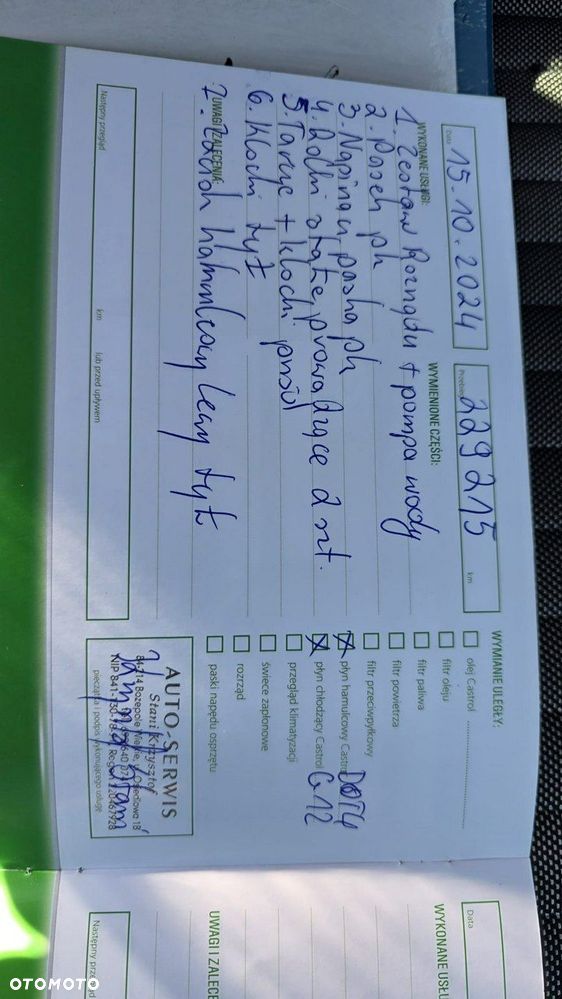 Data 15.10.2024
229 215 km
WYKONANE USŁUGI:
WYMIENIONE CZĘŚCI:
1. Zestaw Rozrządu + pompa wody
2. Pasek pk
3. Napinacz paska pk
4. Rolki stałe prowadzące 2 szt.
5. Tarcze + klocki przód
6. Klocki tył
UWAGI I ZALECENIA:
7. Zacisk hamulcowy lewy tył
Następny przegląd
km
lub przed upływem
WYMIANIE ULEGŁY:
olej Castrol
filtr oleju
filtr paliwa
filtr powietrza
filtr przeciwpyłkowy
płyn hamulcowy Castrol DOT4
płyn chłodzący Castrol G12
przegląd klimatyzacji
świece zapłonowe
rozrząd
paski napędu osprzętu
AUTO-SERWIS
Krzysztof
pieczątka i podpis wykonującego usługę
Data
WYKONANE USŁU
UWAGI I ZALECE
Następny prze
OTOMOTO